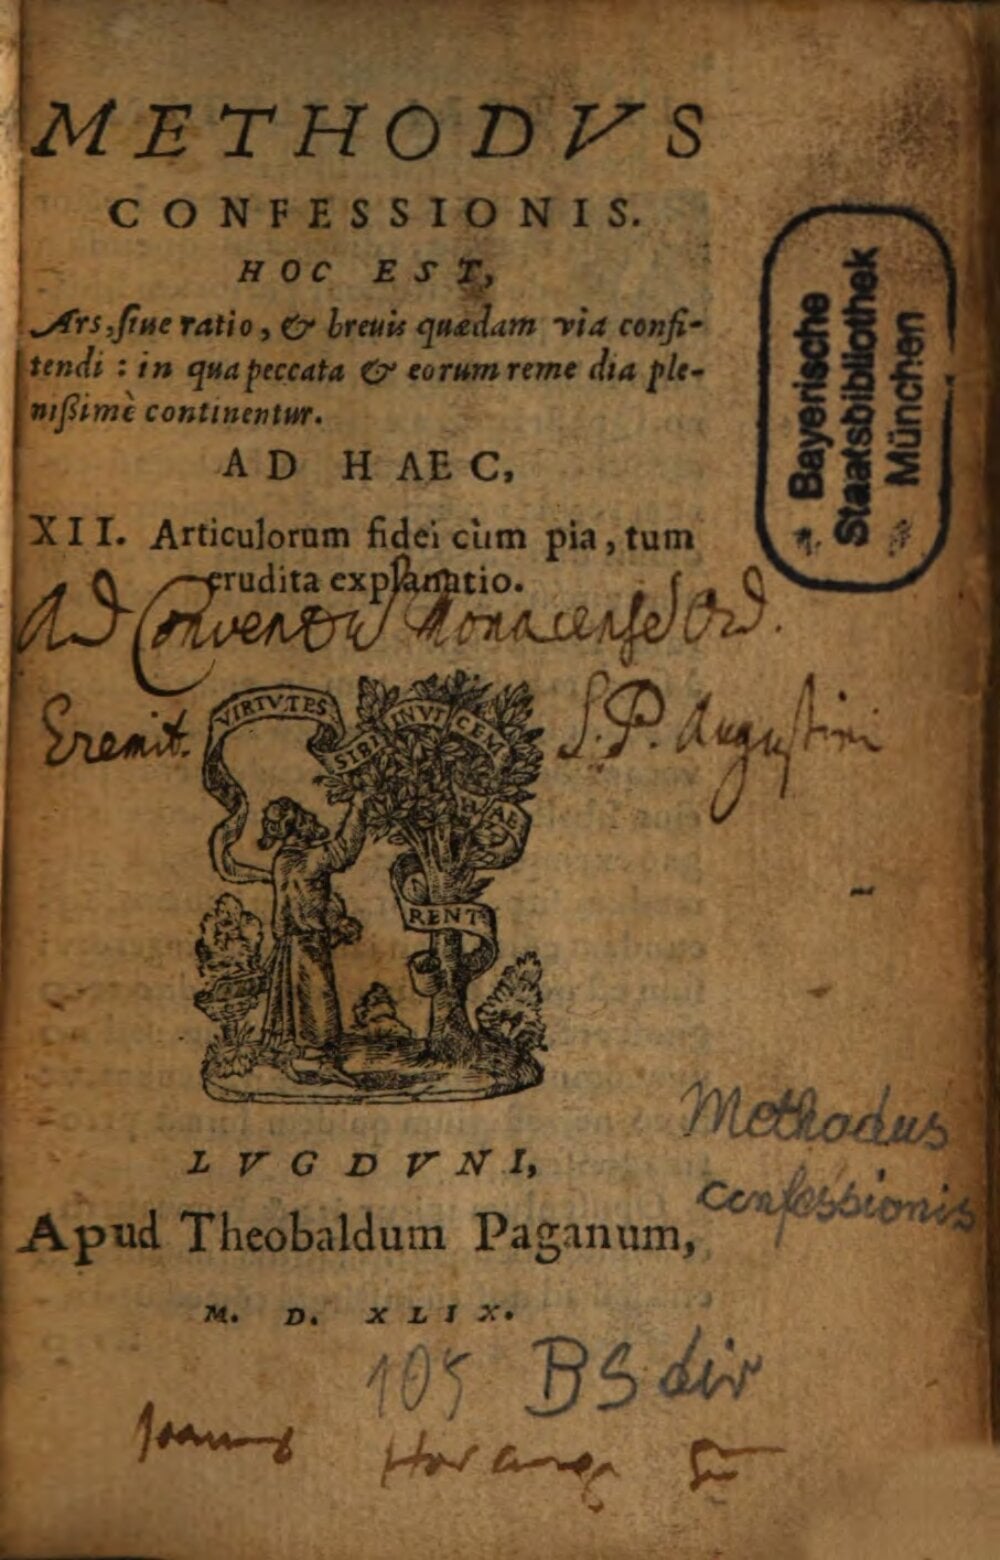 METHODVS
CONFESSIONIS.
HOC EST,
Ars, siue ratio, & breuis quædam via confi-
tendi : in qua peccata & eorum reme dia ple-
nißimè continentur.
AD HAEC,
XII. Articulorum fidei cùm pia, tum
erudita explanatio.
Ad Conventu Monacense Ord.
Eremit. S. P. Augustini
VIRTVTES
SIBI INVICEM
HAE
RENT
LVGDVNI,
Apud Theobaldum Paganum,
M. D. XLIX.
Methodus
confessionis
105 BS dir
Bayerische
Staatsbibliothek
München